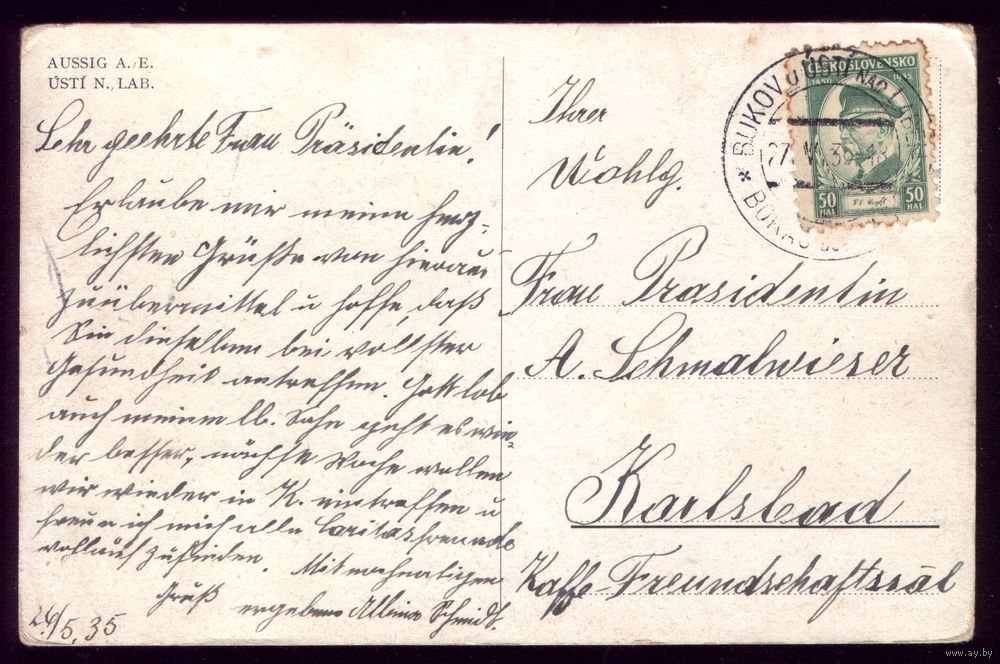 AUSSIG A./E.
ÚSTÍ N. LAB.
Sehr geehrte Frau Präsidentin!
Erlaube mir meine herz-
lichsten Grüße von hieraus
zuübermittel u hoffe, daß
Sie dieselben bei vollster
Gesundheit antreffen. Gottlob
auch meinem lb. Sohn geht es wie-
der besser, nächste Woche wollen
wir wieder in K. eintreffen u
freue ich mich alle
vollauf zufinden. Mit nochmaligen
Gruß ergebene Albina Schmidt.
26/5.35
Ihrer
Wohlg.
Frau Präsidentin
A. Schmalwieser
Karlsbad
Kaffe Freundschaftssäl
ČESKOSLOVENSKO
1850 1935
50 HAL
50 HAL
BUKOV u ÚSTÍ NAD
27. V. 35
www.ay.by